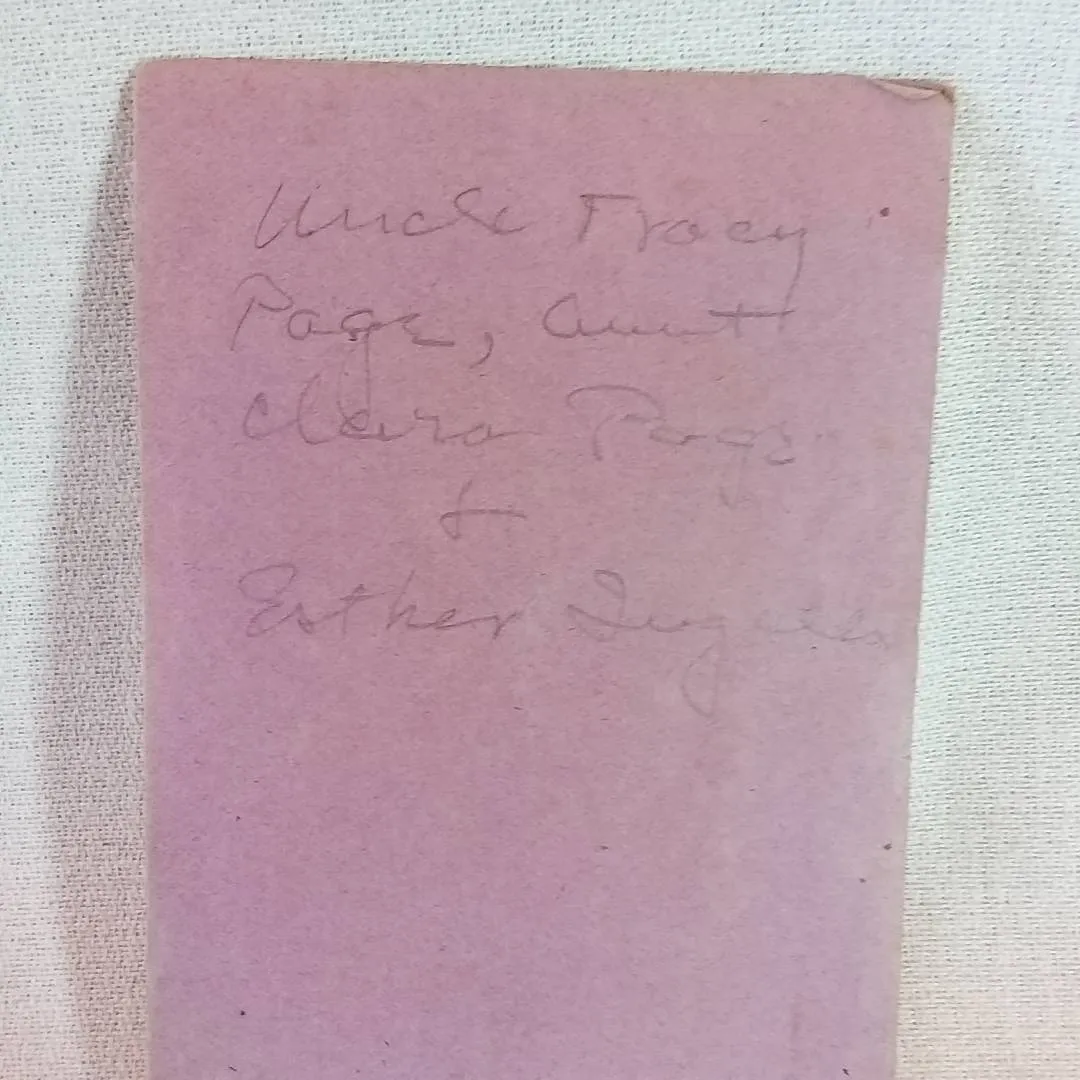 Uncle Tracy
Page, Aunt
Clara Page
+
Esther